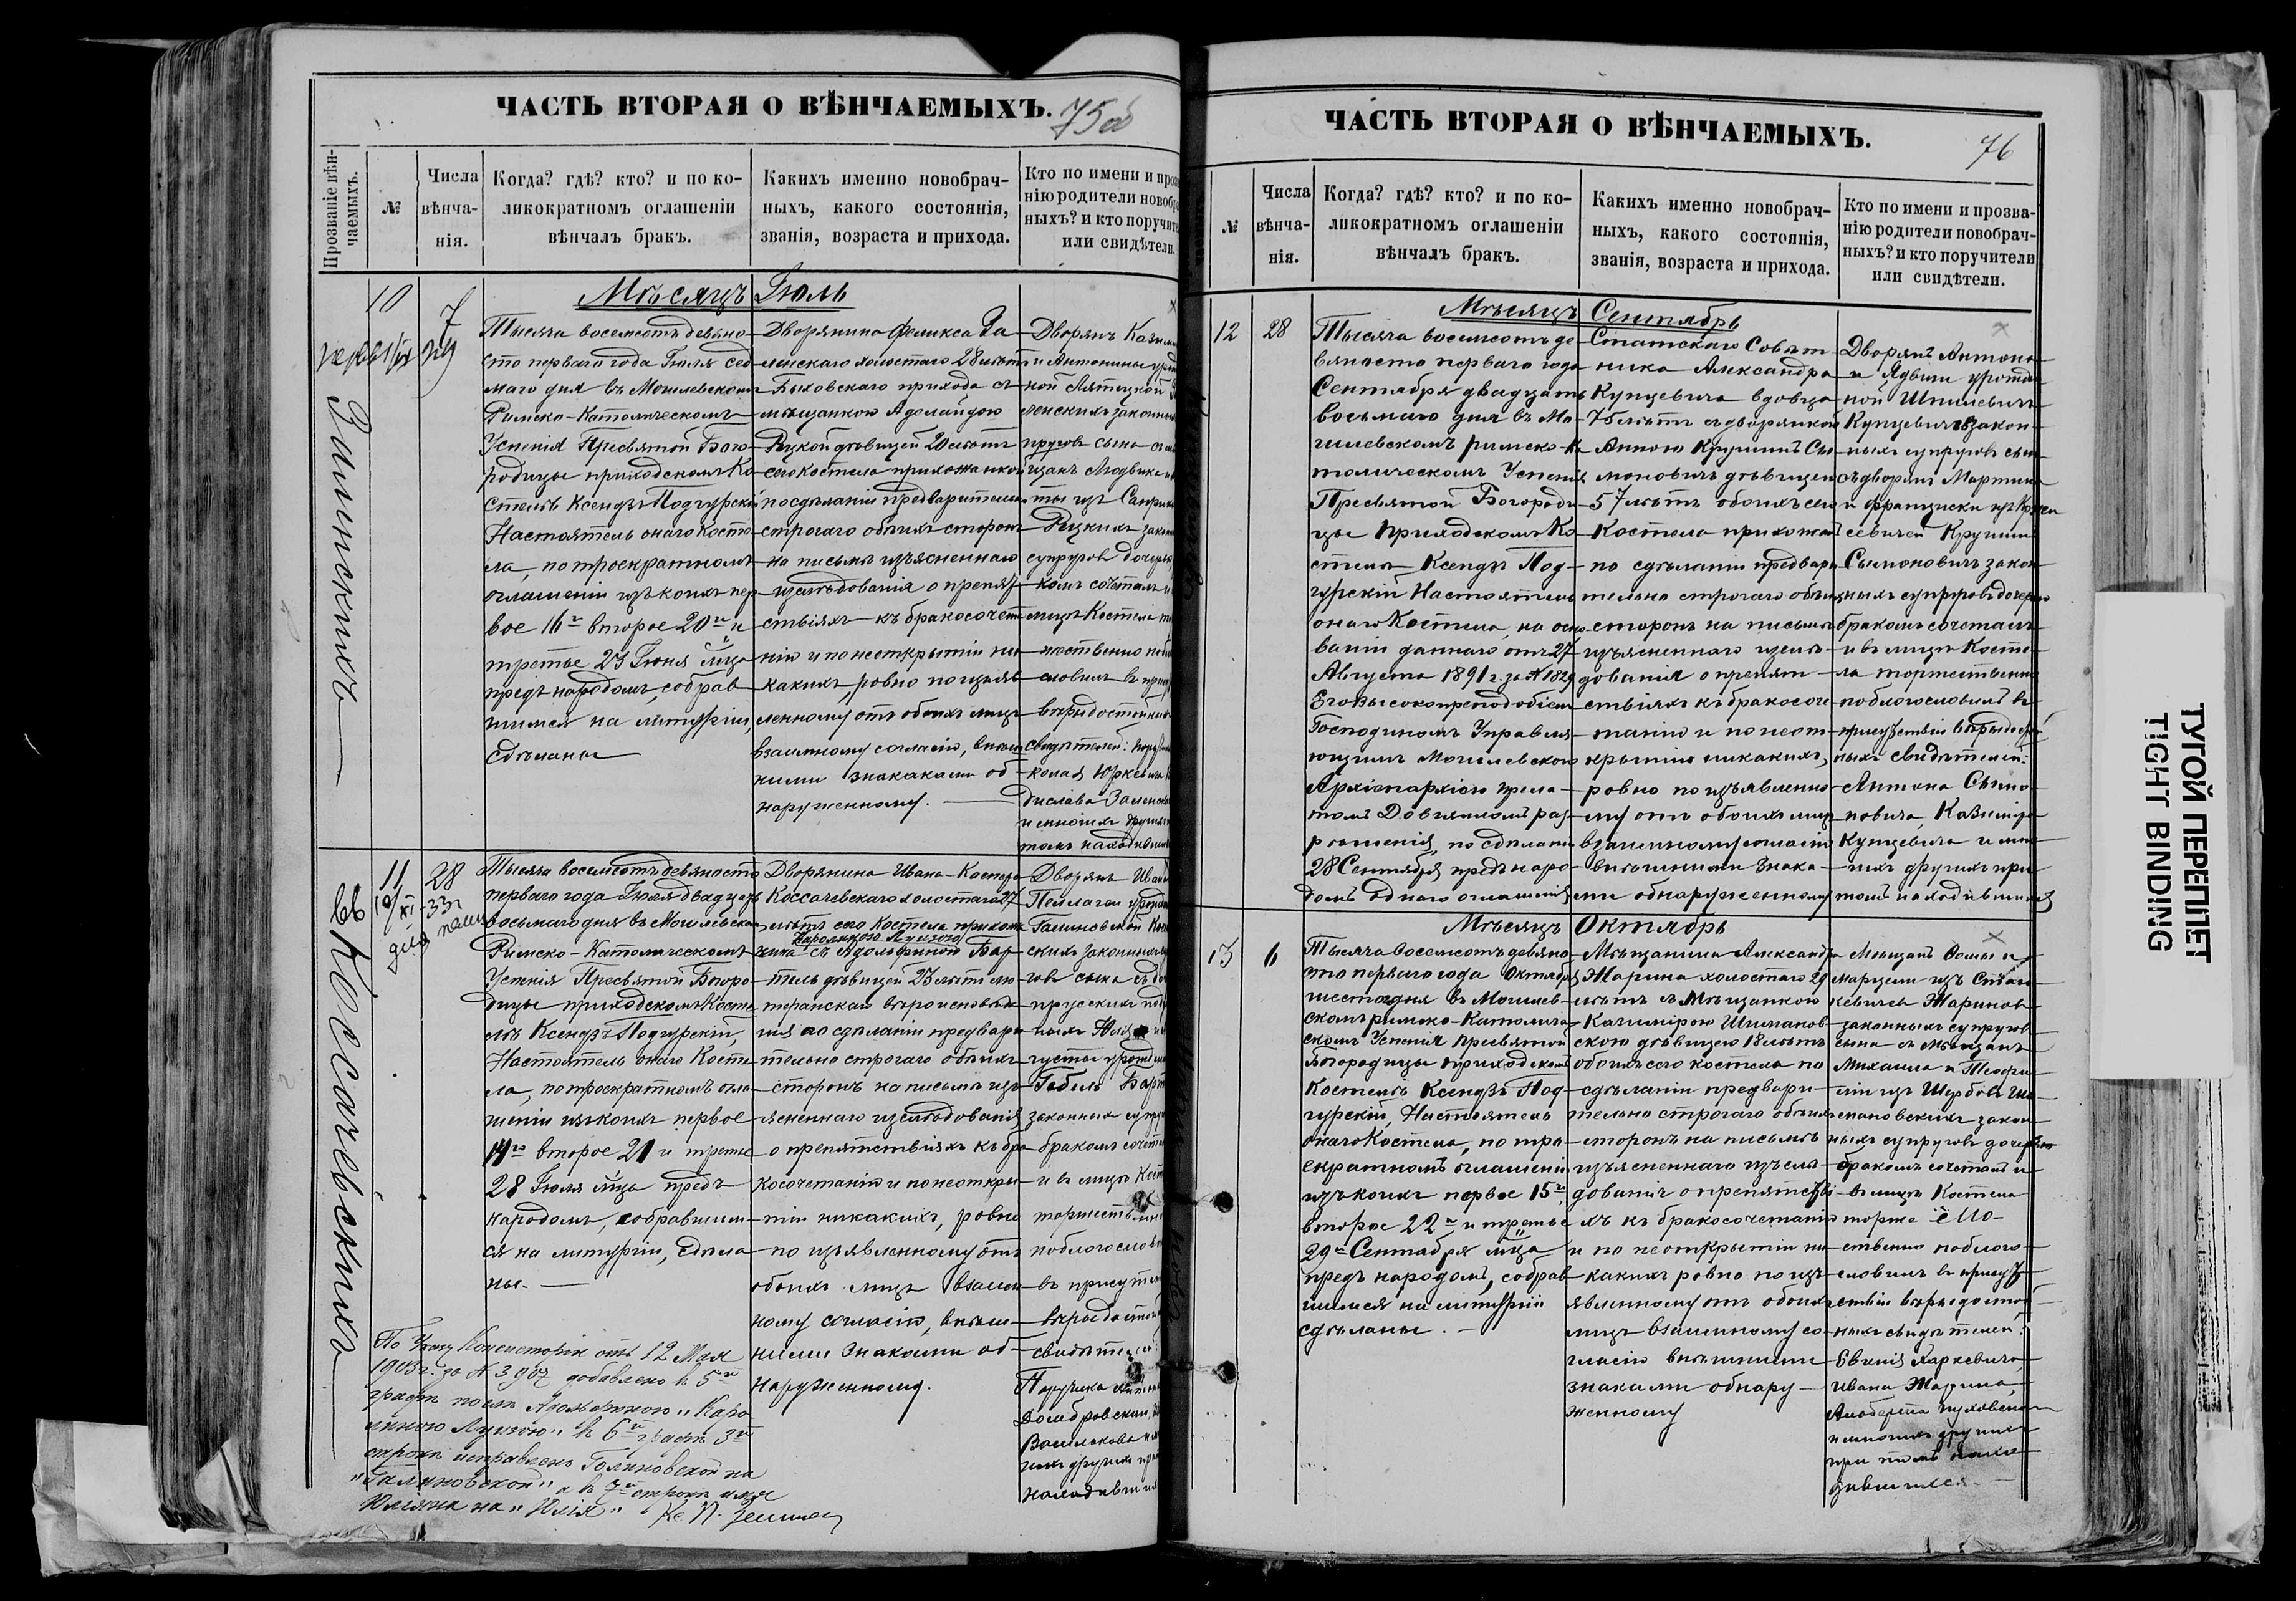 ЧАСТЬ ВТОРАЯ О ВѢНЧАЕМЫХЪ.
75об
Прозваніе вѣн-
чаемыхъ.
№
Числа
вѣнча-
нія.
Когда? гдѣ? кто? и по ко-
ликократномъ оглашеніи
вѣнчалъ бракъ.
Какихъ именно новобрач-
ныхъ, какого состоянія,
званія, возраста и прихода.
Кто по имени и
нію родители
ныхъ? и кто
или свидѣтели.
Мѣсяцъ Іюль
10
7
Залинскихъ
Тысяча восемсотъ девяно-
сто перваго года Іюля сед-
маго дня въ Могилевскомъ
Римско-Католическомъ
Успенія Пресвятой Бого-
родицы приходскомъ Ко-
стелѣ Ксендзъ Подгурскій
Настоятель онаго Косте-
ла, по троекратномъ
оглашеніи изъ коихъ пер
вое 16го второе 20го и
третье 23 Іюня м̃ца
предъ народомъ, собрав
шимся на литургіи,
сдѣланы
Дворянина Феликса За
линскаго холостаго 28 лѣтъ
Быховскаго прихода съ
мѣщанкою Аделаидою
Рецкой дѣвицей 20 лѣтъ
сего Костела прихожанкой
по сдѣланіи предварительно
строгаго обѣихъ сторонъ
на письмѣ изъясненнаго
изслѣдованія о препят
ствіяхъ къ бракосочета
нію и по неоткрытіи ни
какихъ, ровно по изъяв
ленному отъ обоихъ лицъ
взаимному согласію, внѣш
ними знаками об-
наруженному.
Дворянъ
и Антонины
ной
законныхъ
сына съ
щанъ Людвика
ты изъ
Рецкихъ
супруговъ дочерью
комъ сочеталъ и
лицѣ Костела
жественно
словилъ въ
вѣрыдостойныхъ
свидѣтелей:
Юркевича
дислава
и многихъ другихъ
томъ находившихся
11
28
Коссачевскихъ
Тысяча восемсотъ девяносто
перваго года Іюля двадцать
восьмаго дня въ Могилевскомъ
Римско-Католическомъ
Успенія Пресвятой Богоро-
дицы приходскомъ Косте
лѣ Ксендзъ Подгурскій,
Настоятель онаго Косте
ла, по троекратномъ огла
шеніи изъ коихъ первое
14го второе 21 и третье
28 Іюля м̃ца предъ
народомъ, собравшим-
ся на литургіи, сдѣла
ны.
Дворянина Ивана-Каспера
Коссачевскаго холостаго 27
лѣтъ сего Костела прихожа
Каролиною Луизою
нина съ Адольфиной Бар-
тель дѣвицей 23 лѣтъ лю-
теранскаго вѣроисповѣда
нія по сдѣланіи предвари
тельно строгаго обѣихъ
сторонъ на письмѣ изъ
ясненнаго изслѣдованія
о препятствіяхъ къ бра
косочетанію и по неоткры-
тіи никакихъ, ровно
по изъявленному отъ
обоихъ лицъ взаим
ному согласію, внѣш-
ними знаками об-
наруженному.
Дворянъ Ивана
Пелагеи
Галиновской
скихъ законныхъ
говъ сына съ
прусскихъ
ныхъ Юлія и
густы
Гебель
законныхъ
бракомъ
и въ лицѣ
торжественно
поблагослови
въ присутствіи
свидѣтелей
Поручика
Домбровскаго,
Василькова
гихъ другихъ
находивших
По Указу Консисторіи отъ 12 Мая
1903 г. за № 3967 добавлено въ 5й
графѣ послѣ Адольфиною "Каро
линою Луизою" въ 6й графѣ 3й
строкѣ исправлено Голиновской на
"Галиновской" а въ 7й строкѣ имя
Юліяна на "Юлія"
ЧАСТЬ ВТОРАЯ О ВѢНЧАЕМЫХЪ.
76
№
Числа
вѣнча-
нія.
Когда? гдѣ? кто? и по ко-
ликократномъ оглашеніи
вѣнчалъ бракъ.
Какихъ именно новобрач-
ныхъ, какого состоянія,
званія, возраста и прихода.
Кто по имени и прозва-
нію родители новобрач-
ныхъ? и кто поручители
или свидѣтели.
Мѣсяцъ Сентябрь
12
28
Тысяча восемсотъ де-
вяносто перваго года
Сентября двадцать
восьмаго дня въ Мо-
гилевскомъ римско-Ка
толическомъ Успенія
Пресвятой Богороди
цы Приходскомъ Ко-
стелѣ Ксендзъ Под-
гурскій Настоятель
онаго Костела, на осно
ваніи даннаго отъ 27
Августа 1891 г. за № 1829
Его Высокопреподобіем
Господиномъ Управля-
ющимъ Могилевскою
Архіепархіею Прела-
томъ Довгялломъ раз-
рѣшенія, по сдѣланіи
28 Сентября предъ наро-
домъ одного оглашенія
Статскаго Совѣт-
ника Александра
Купцевича вдовца
75 лѣтъ съ дворянкой
Анною Крупишъ Сы-
моновичъ дѣвицей
57 лѣтъ обоихъ сего
Костела прихожан
по сдѣланіи предвари
тельно строгаго обѣихъ
сторонъ на письмѣ
изъясненнаго изслѣ-
дованія о препят-
ствіяхъ къ бракосоче
танію и по неот-
крытію никакихъ,
ровно по изъявленно-
му отъ обоихъ лицъ
взаимному согласію
внѣшними знака-
ми обнаруженному
Дворянъ Антона
и Ядвиги урожден
ной Шпилевичъ
Купцевичъ закон-
ныхъ супруговъ сына
съ дворянъ Мартина
и Францишки изъ
севичей Крупишъ
Сымоновичъ закон
ныхъ супруговъ дочерью
бракомъ сочеталъ
и въ лицѣ Косте-
ла торжественно
поблагословилъ въ
присутствіи вѣрыдостой
ныхъ свидѣтелей:
Антона Сымо-
новича, Казиміра
Купцевича и мно-
гихъ другихъ при
томъ находившихся
Мѣсяцъ Октябрь
13
6
Тысяча восемсотъ девяно-
сто перваго года Октября
шестаго дня въ Могилев-
скомъ римско-Католиче
скомъ Успенія Пресвятой
Богородицы приходскомъ
Костелѣ Ксендзъ Под-
гурскій, Настоятель
онаго Костела, по тро-
екратномъ оглашеніи
изъ коихъ первое 15го,
второе 22го и третье
29го Сентября м̃ца
предъ народомъ, собрав
шимся на литургіи
сдѣланы.
Мѣщанина Александра
Жарина холостаго 29
лѣтъ съ Мѣщанкою
Казимірою Шиманов-
скою дѣвицею 18 лѣтъ
обоихъ сего костела по
сдѣланіи предвари-
тельно строгаго обѣихъ
сторонъ на письмѣ
изъясненнаго изслѣ-
дованія о препятстві
яхъ къ бракосочетанію
и по неоткрытіи ни
какихъ ровно по изъ-
явленному отъ обоихъ
лицъ взаимному со-
гласію внѣшними
знаками обнару-
женному
Мѣщанъ Фомы и
Марцели изъ
кевичей Жариновъ
законныхъ супруговъ
сына съ мѣщанъ
Михаила и Теофи-
ліи изъ Щербовъ Ши-
мановскихъ закон-
ныхъ супруговъ дочерью
бракомъ сочеталъ и
въ лицѣ Костела
торже
ственно поблаго-
словилъ въ присут
ствіи вѣрыдостой
ныхъ свидѣтелей:
Ивана Жарина,
и многихъ другихъ
при томъ нахо
дившихся.
ТУГОЙ ПЕРЕПЛЕТ
TIGHT BINDING